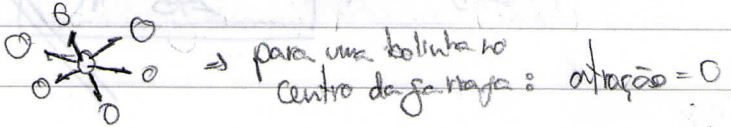 ⇒ para uma bolinha no
centro da garrafa: atração = 0